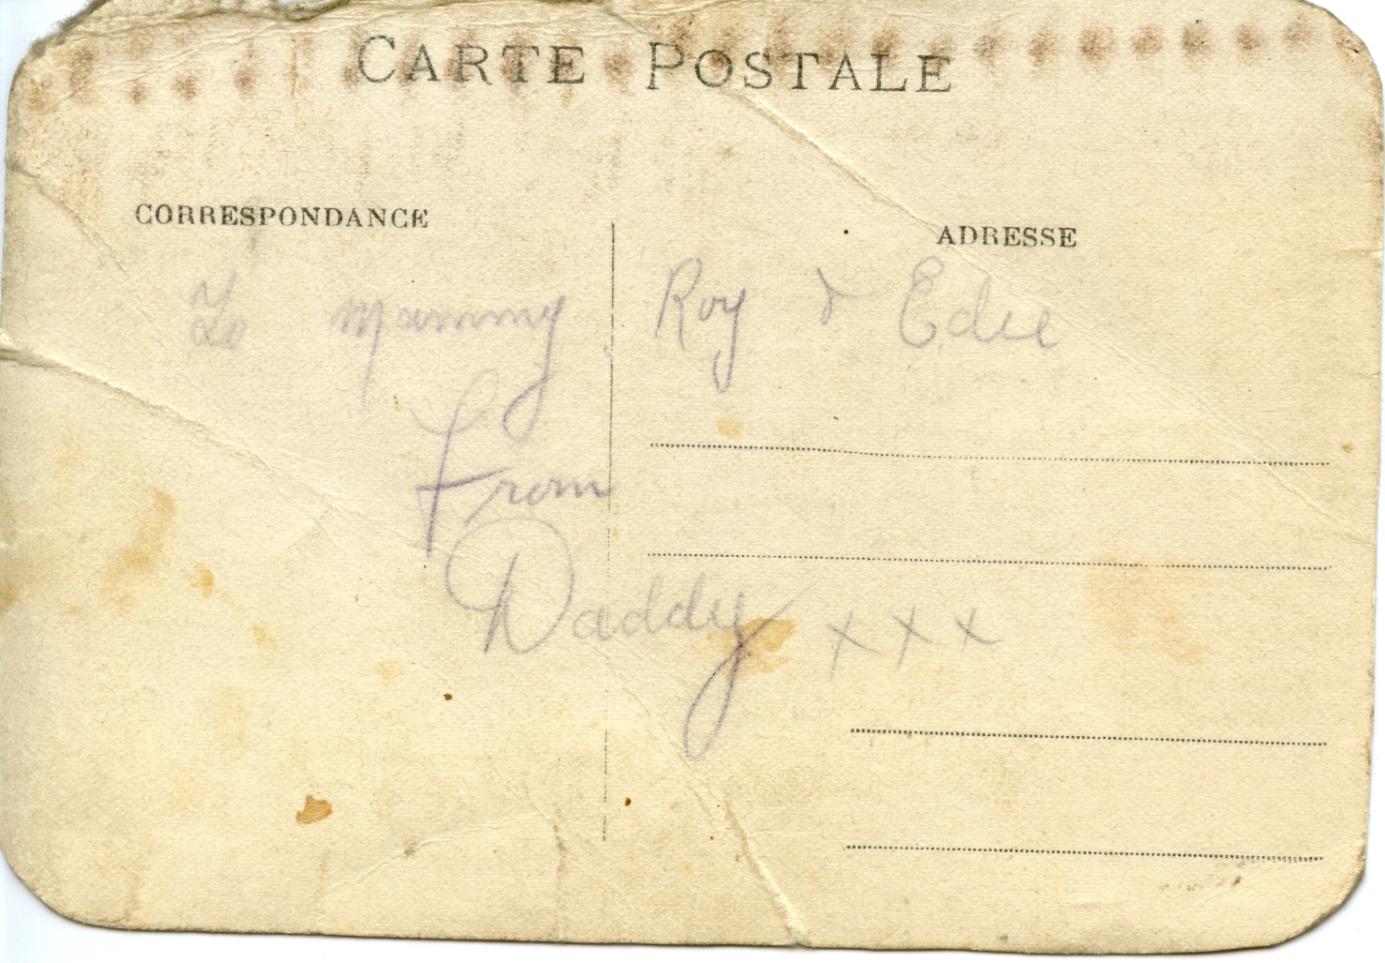 CARTE POSTALE
CORRESPONDANCE
ADRESSE
To Mammy Roy & Edie
From
Daddy x x x